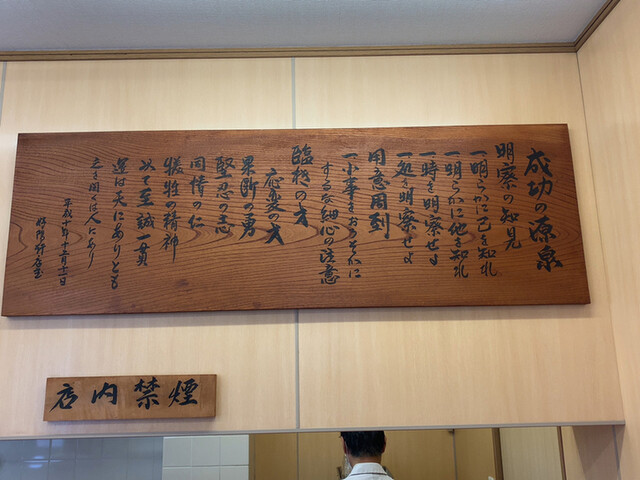 成功の源泉
明察の知見
一明らかに己を知れ
一明らかに他を知れ
一時を明察せよ
一処を明察せよ
用意周到
一小事をおろそかに
するな細心の注意
臨機の才
応変の才
果断の勇
堅忍の志
同情の仁
犠牲の精神
以て至誠一貫
運は天にありとも
之を開くは人にあり
平成十年十二月十一日
店内禁煙